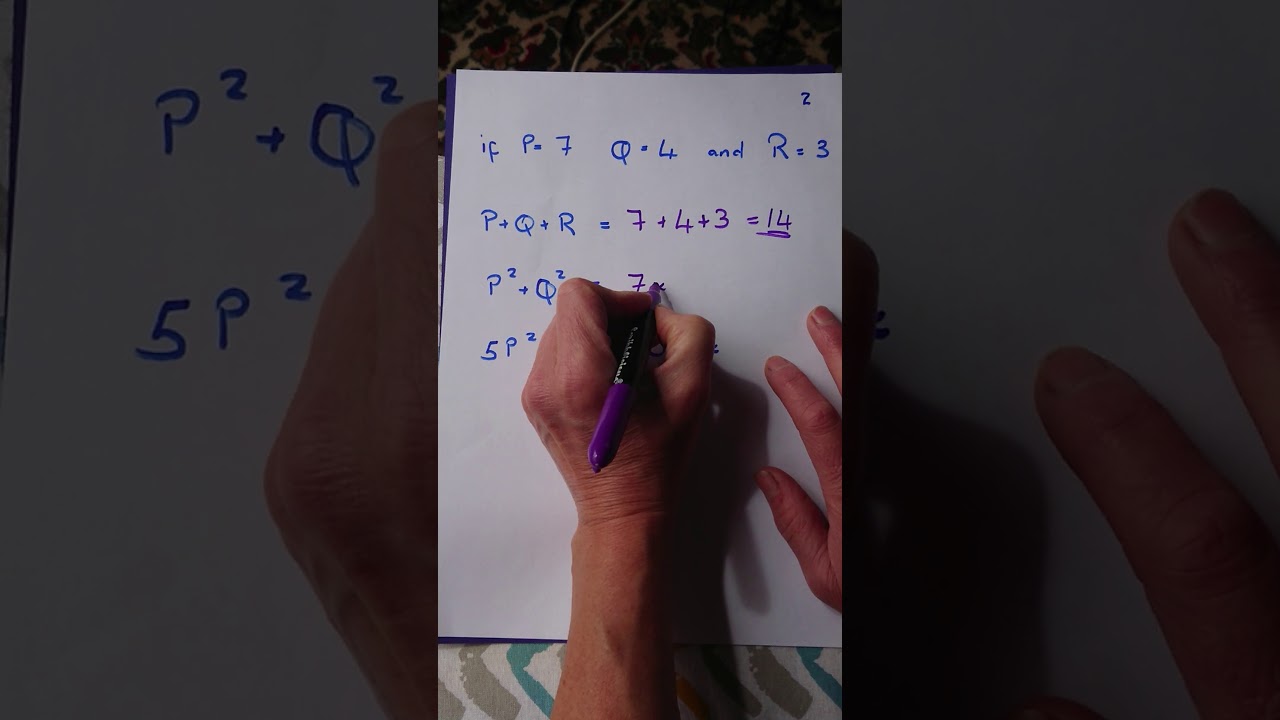 2
if P= 7 Q = 4 and R = 3
P+Q+R = 7 + 4 + 3 = 14
P² + Q² = 7 ×
5P² =